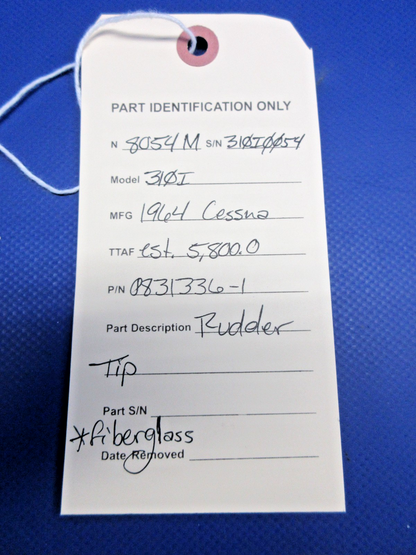 PART IDENTIFICATION ONLY
N 8054M S/N 310I0054
Model 310I
MFG 1964 Cessna
TTAF est. 5,800.0
P/N 0831336-1
Part Description Rudder
Tip
Part S/N
*fiberglass
Date Removed